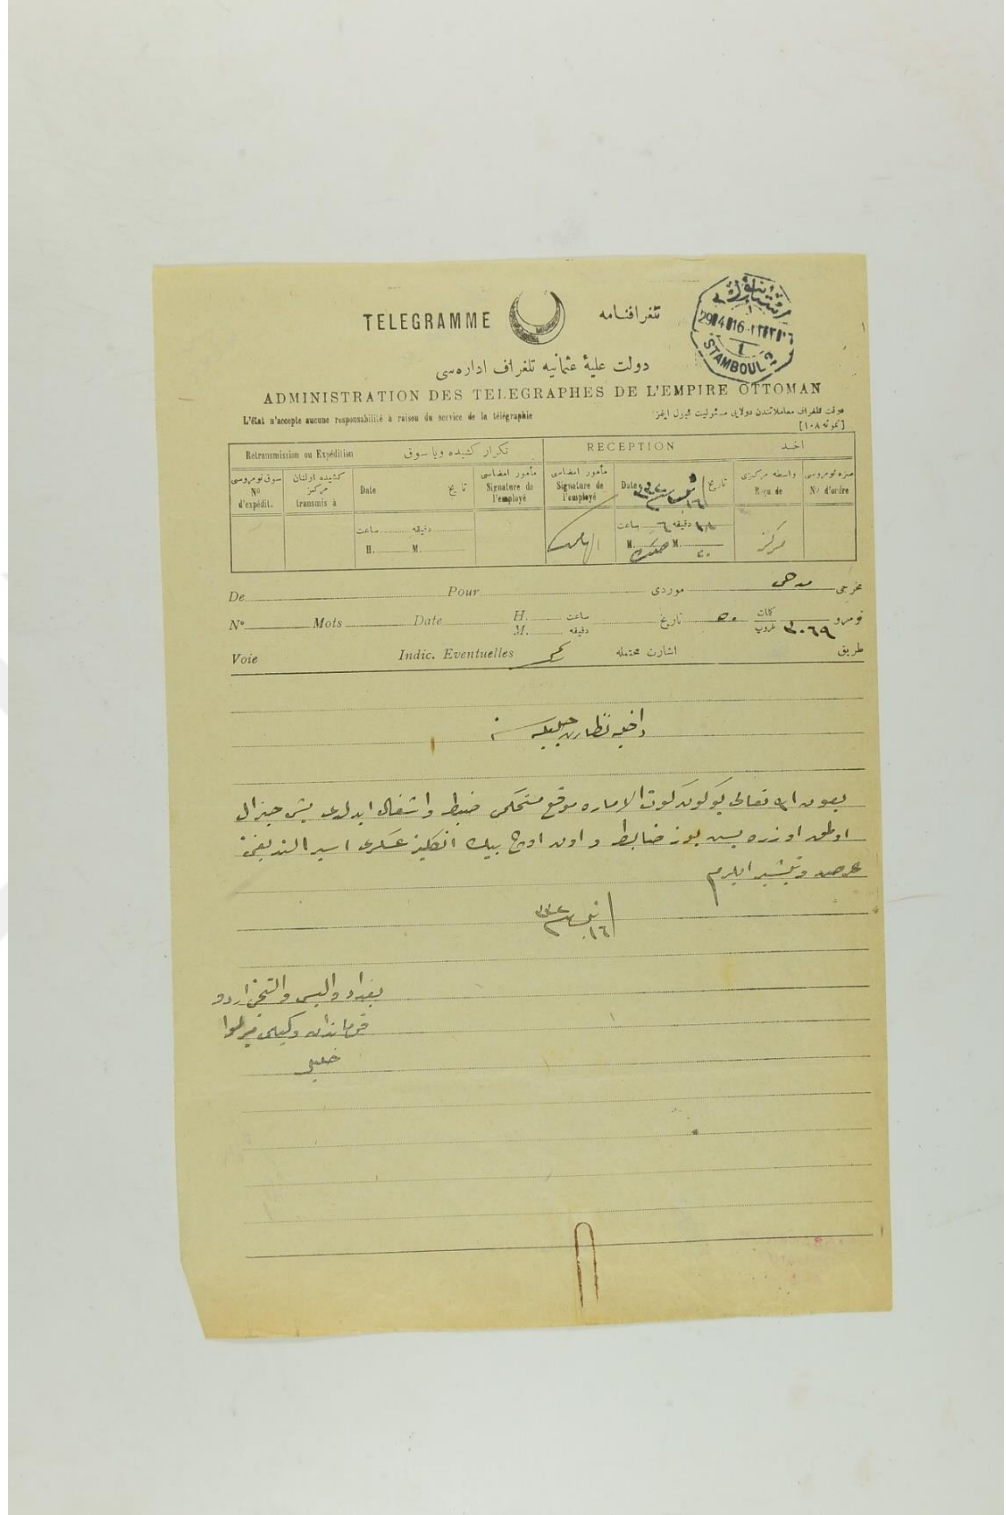 TELEGRAMME تلغرافنامه
استانبول
29 4 16
STAMBOUL
دولت عليۀ عثمانيه تلغراف اداره‌سی
ADMINISTRATION DES TELEGRAPHES DE L'EMPIRE OTTOMAN
L'État n'accepte aucune responsabilité à raison du service de la télégraphie
دولت تلغراف معاملاتندن دولایی مسئولیت قبول ایتمز
[نمونه ١٠٨]
Retransmission ou Expédition تكرار كشیده ویا سوق RECEPTION اخذ
سوق نومروسی Nº d'expédit. كشیده اولنان مركز transmis à Date تاریخ مأمور امضاسی Signature de l'employé مأمور امضاسی Signature de l'employé Date تاریخ ١٦ نیسان ٣٣٢ واسطه مركزی Reçu de صره نومروسی Nº d'ordre
ساعت دقیقه H. M. ساعت ٦ دقیقه H. M. مركز
De Pour موردی مخرجی
Nº Mots Date H. M. ساعت دقیقه تاریخ ٥٠ كلمات غروپ ٣٠٦٩ نومرو
Voie Indic. Eventuelles اشارت محتمله طریق
داخلیه نظارت جلیله‌سنه
بعون الله تعالی بوكون كوت الاماره موقع مستحكمی ضبط و اشغال ایدلدی بش جنرال
اولمق اوزره بش یوز ضابط و اون اوچ بیك انكلیز عسكری اسیر الندیغنی
عرض و تبشیر ایلرم
١٦ نیسان ٣٣٢
بغداد والیسی و التنجی اردو
قوماندان وكیلی میرلوا
خلیل